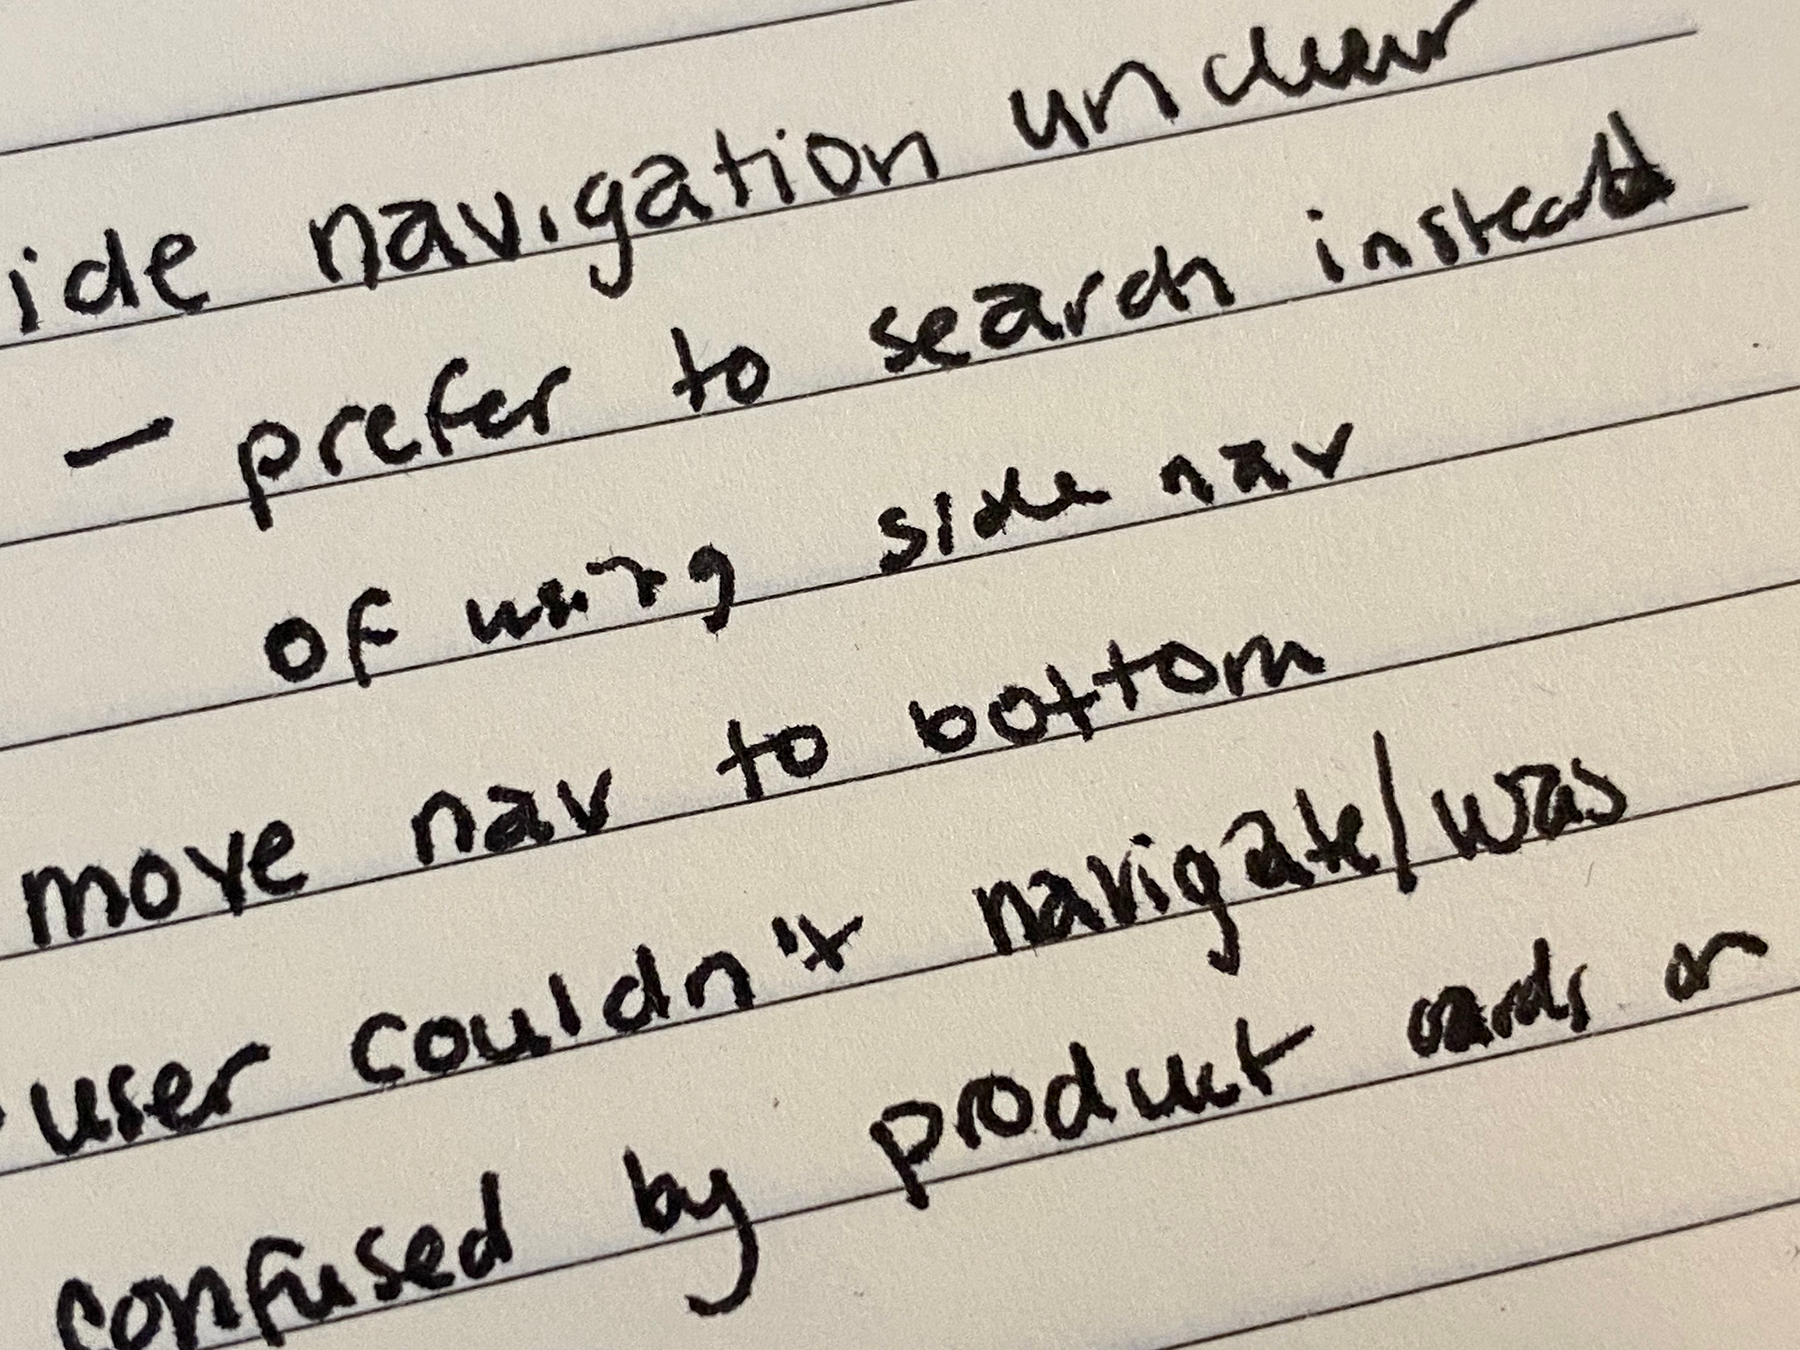 ide navigation unclear
- prefer to search instead
of using side nav
move nav to bottom
user couldn't navigate/was
confused by product cards on